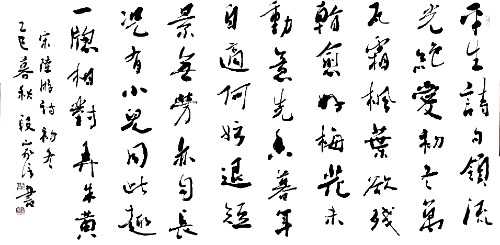 平生詩句領流
光絕愛初冬萬
瓦霜楓葉欲殘
看愈好梅花未
動意先香暮年
自適何妨退短
景無勞亦自長
況有小兒同此趣
一牕相對弄朱黃
宋陸游詩初冬
乙巳喜秋段家書